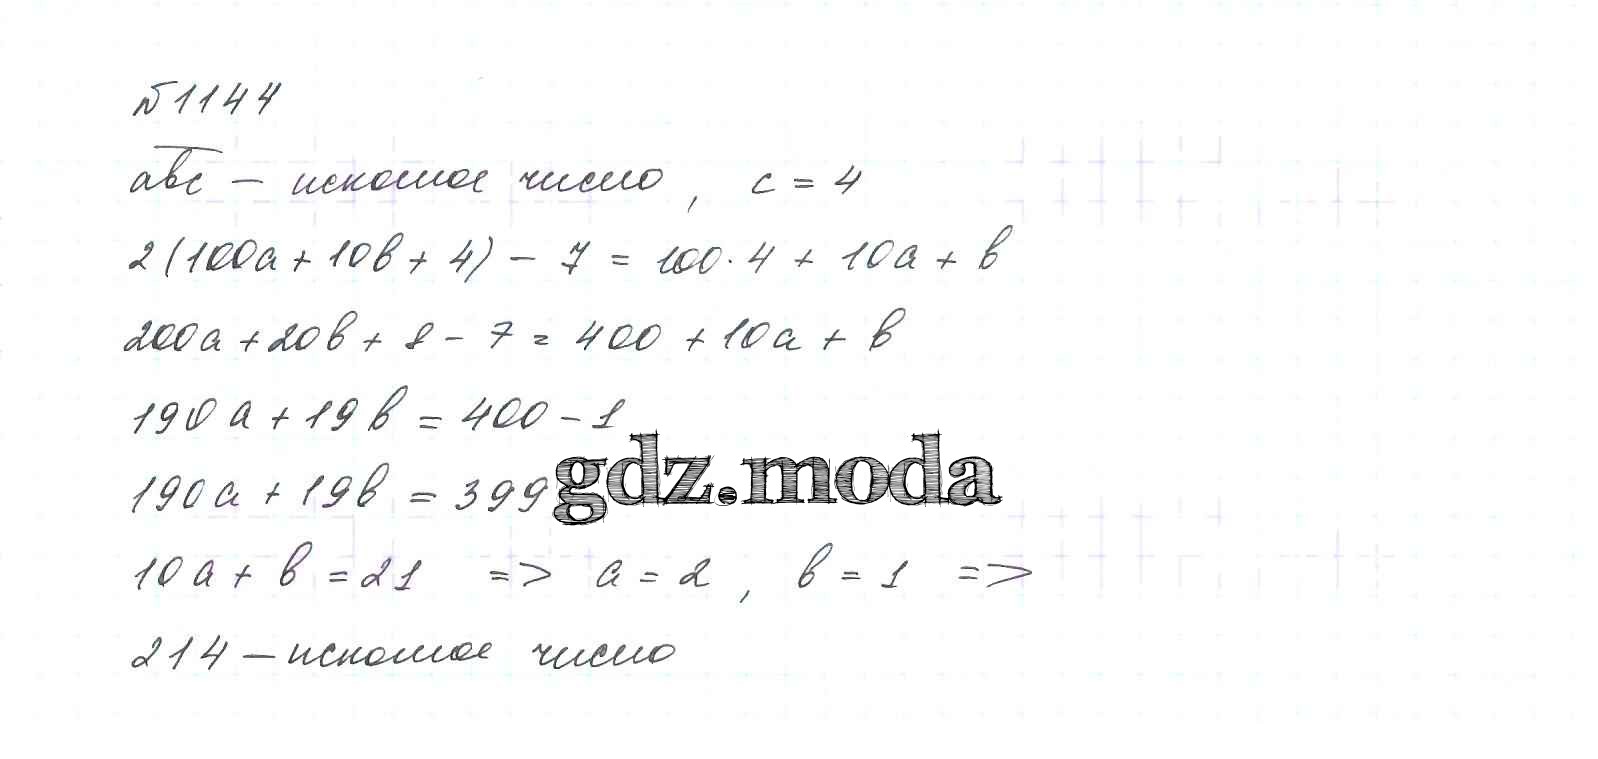 №1144
abc – искомое число, c = 4
2(100a + 10b + 4) – 7 = 100·4 + 10a + b
200a + 20b + 8 – 7 = 400 + 10a + b
190a + 19b = 400 – 1
190a + 19b = 399
gdz.moda
10a + b = 21 => a = 2, b = 1 =>
214 – искомое число